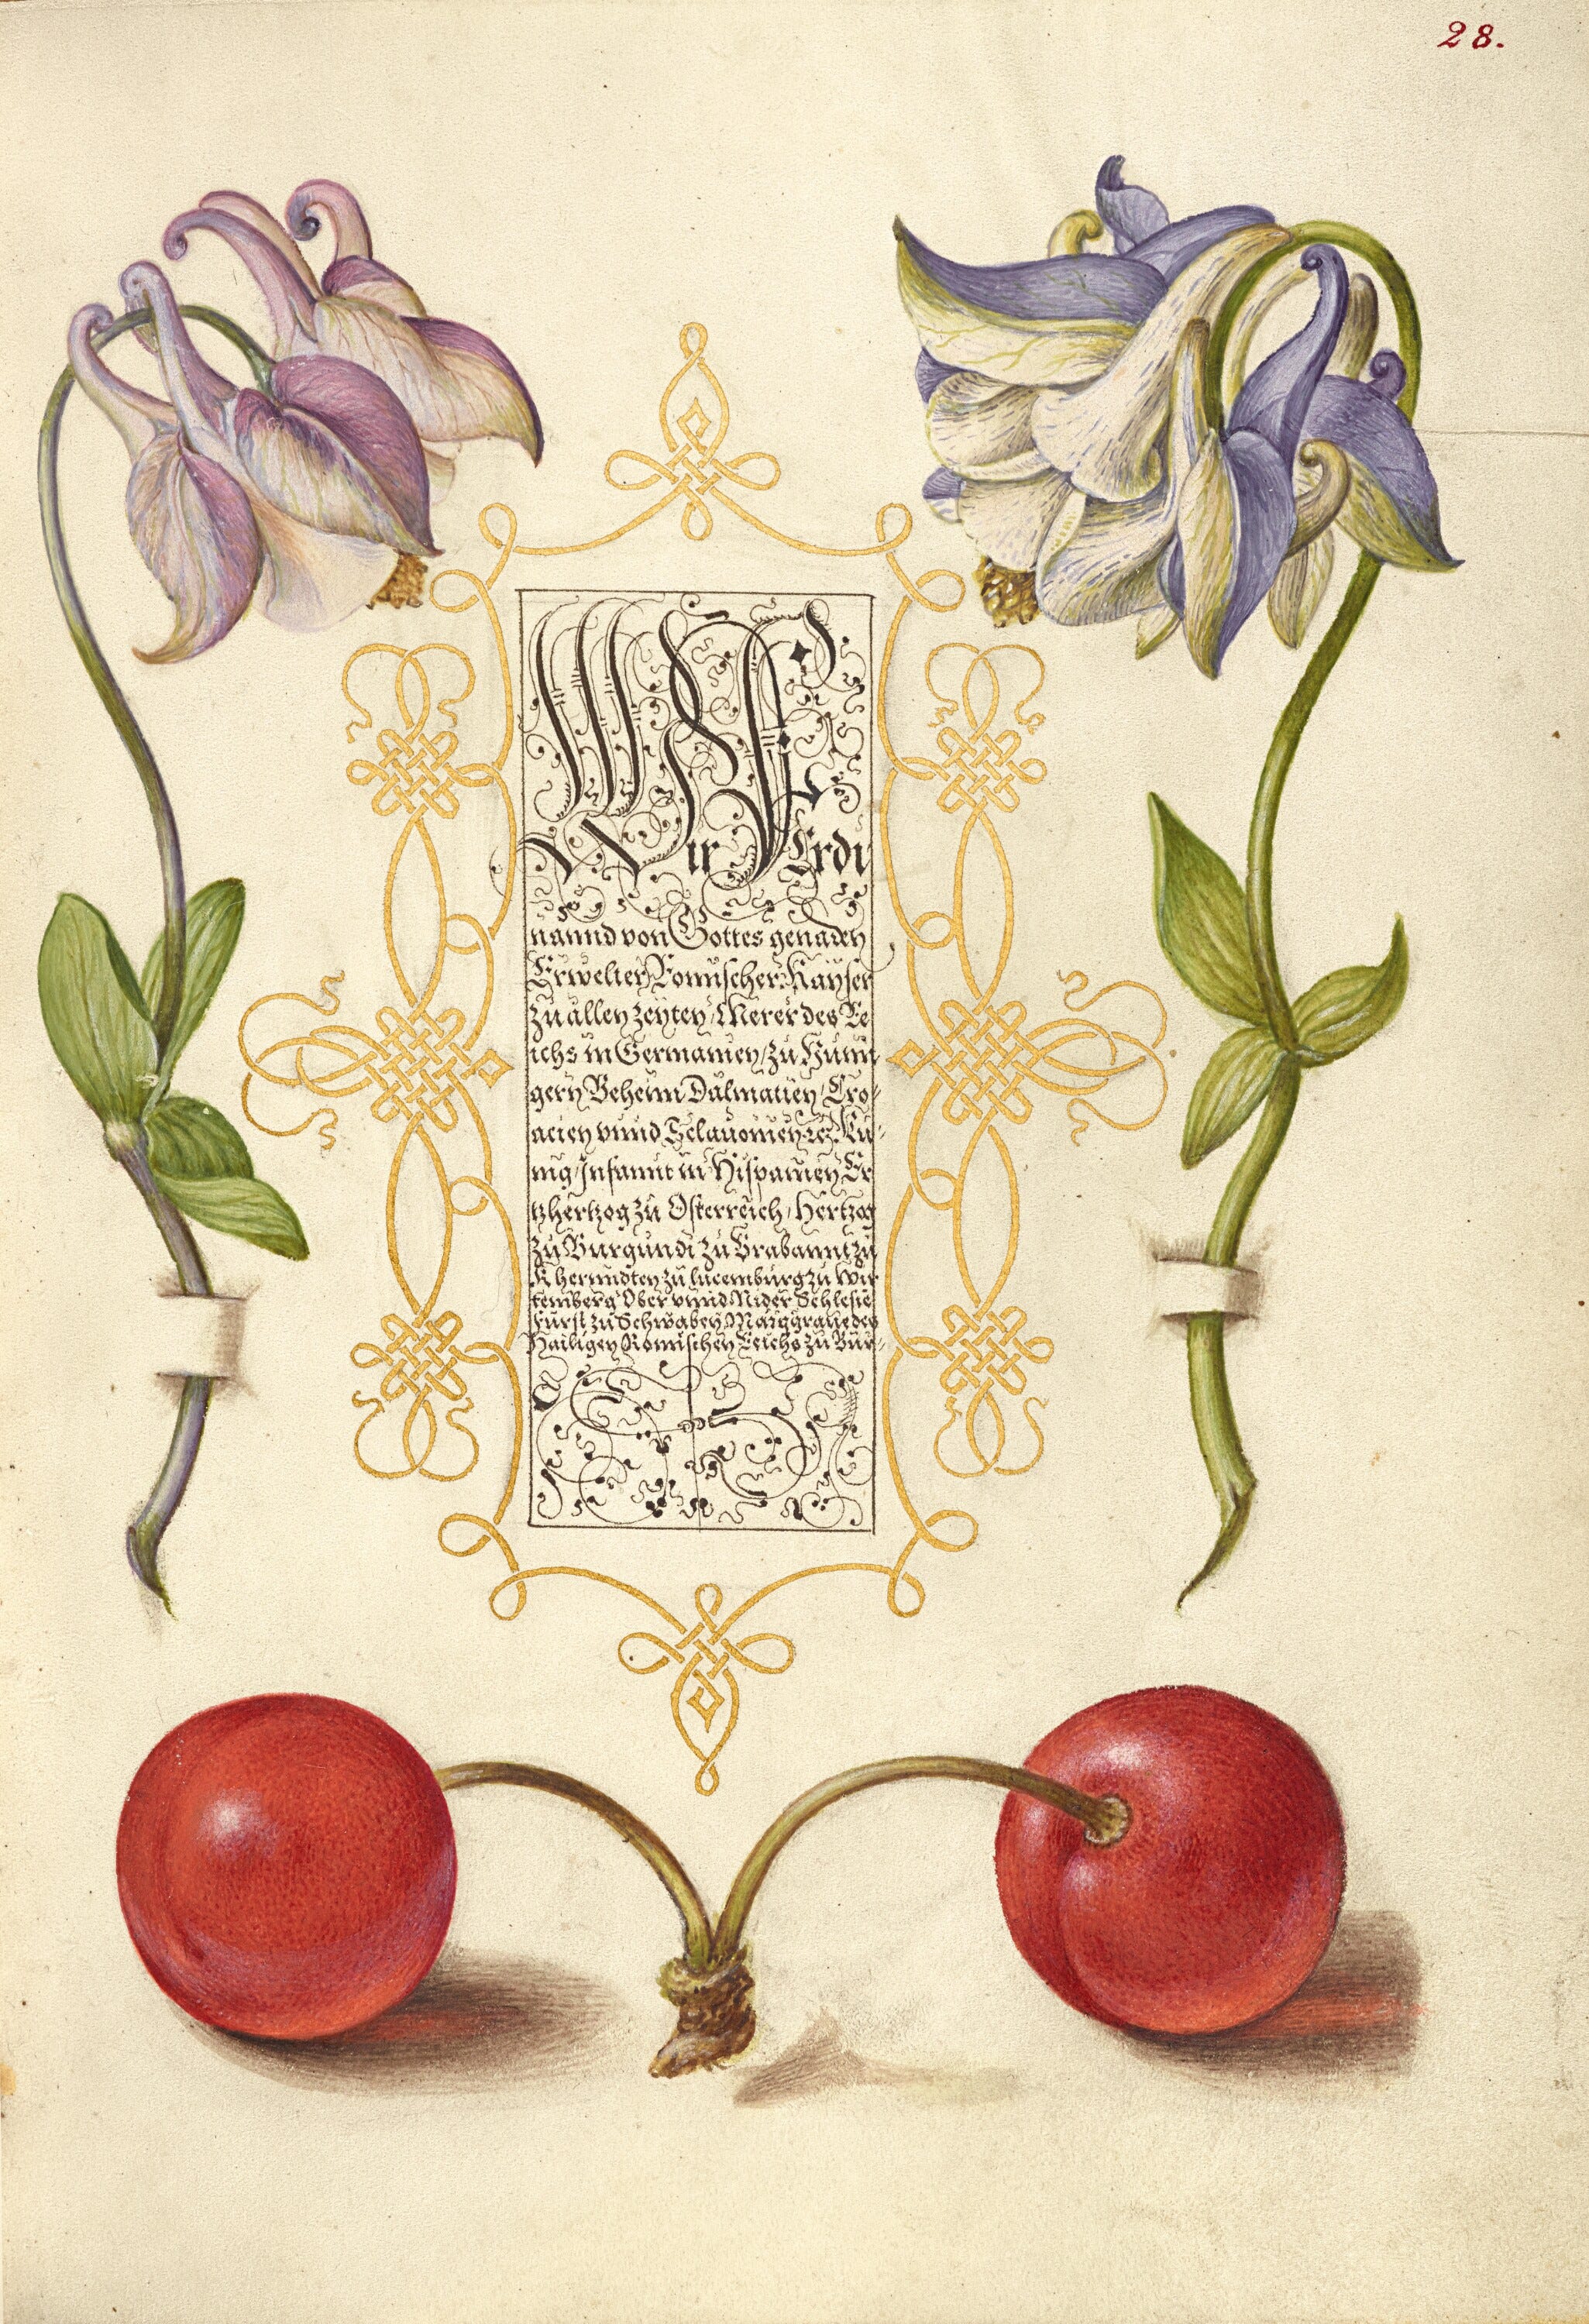 28.
Wir Ferdi
nannd von Gottes genaden
Erwelter Romischer Kayser
zu allen zeyten Merer des Re
ichs in Germanien / zu Hunn
gern Beheim Dalmatien / Cro-
acien vnnd Sclauonien
nig Infannt in Hispanien Er
tzhertzog zu Osterreich / Hertzog
zu Burgundi zu Brabannt zu
zu Lucemburg zu Wir
temberg Ober vnnd Nider Schlesie
Fürst zu Schwaben Marggraue des
Hailigen Romischen Reichs zu Bur-